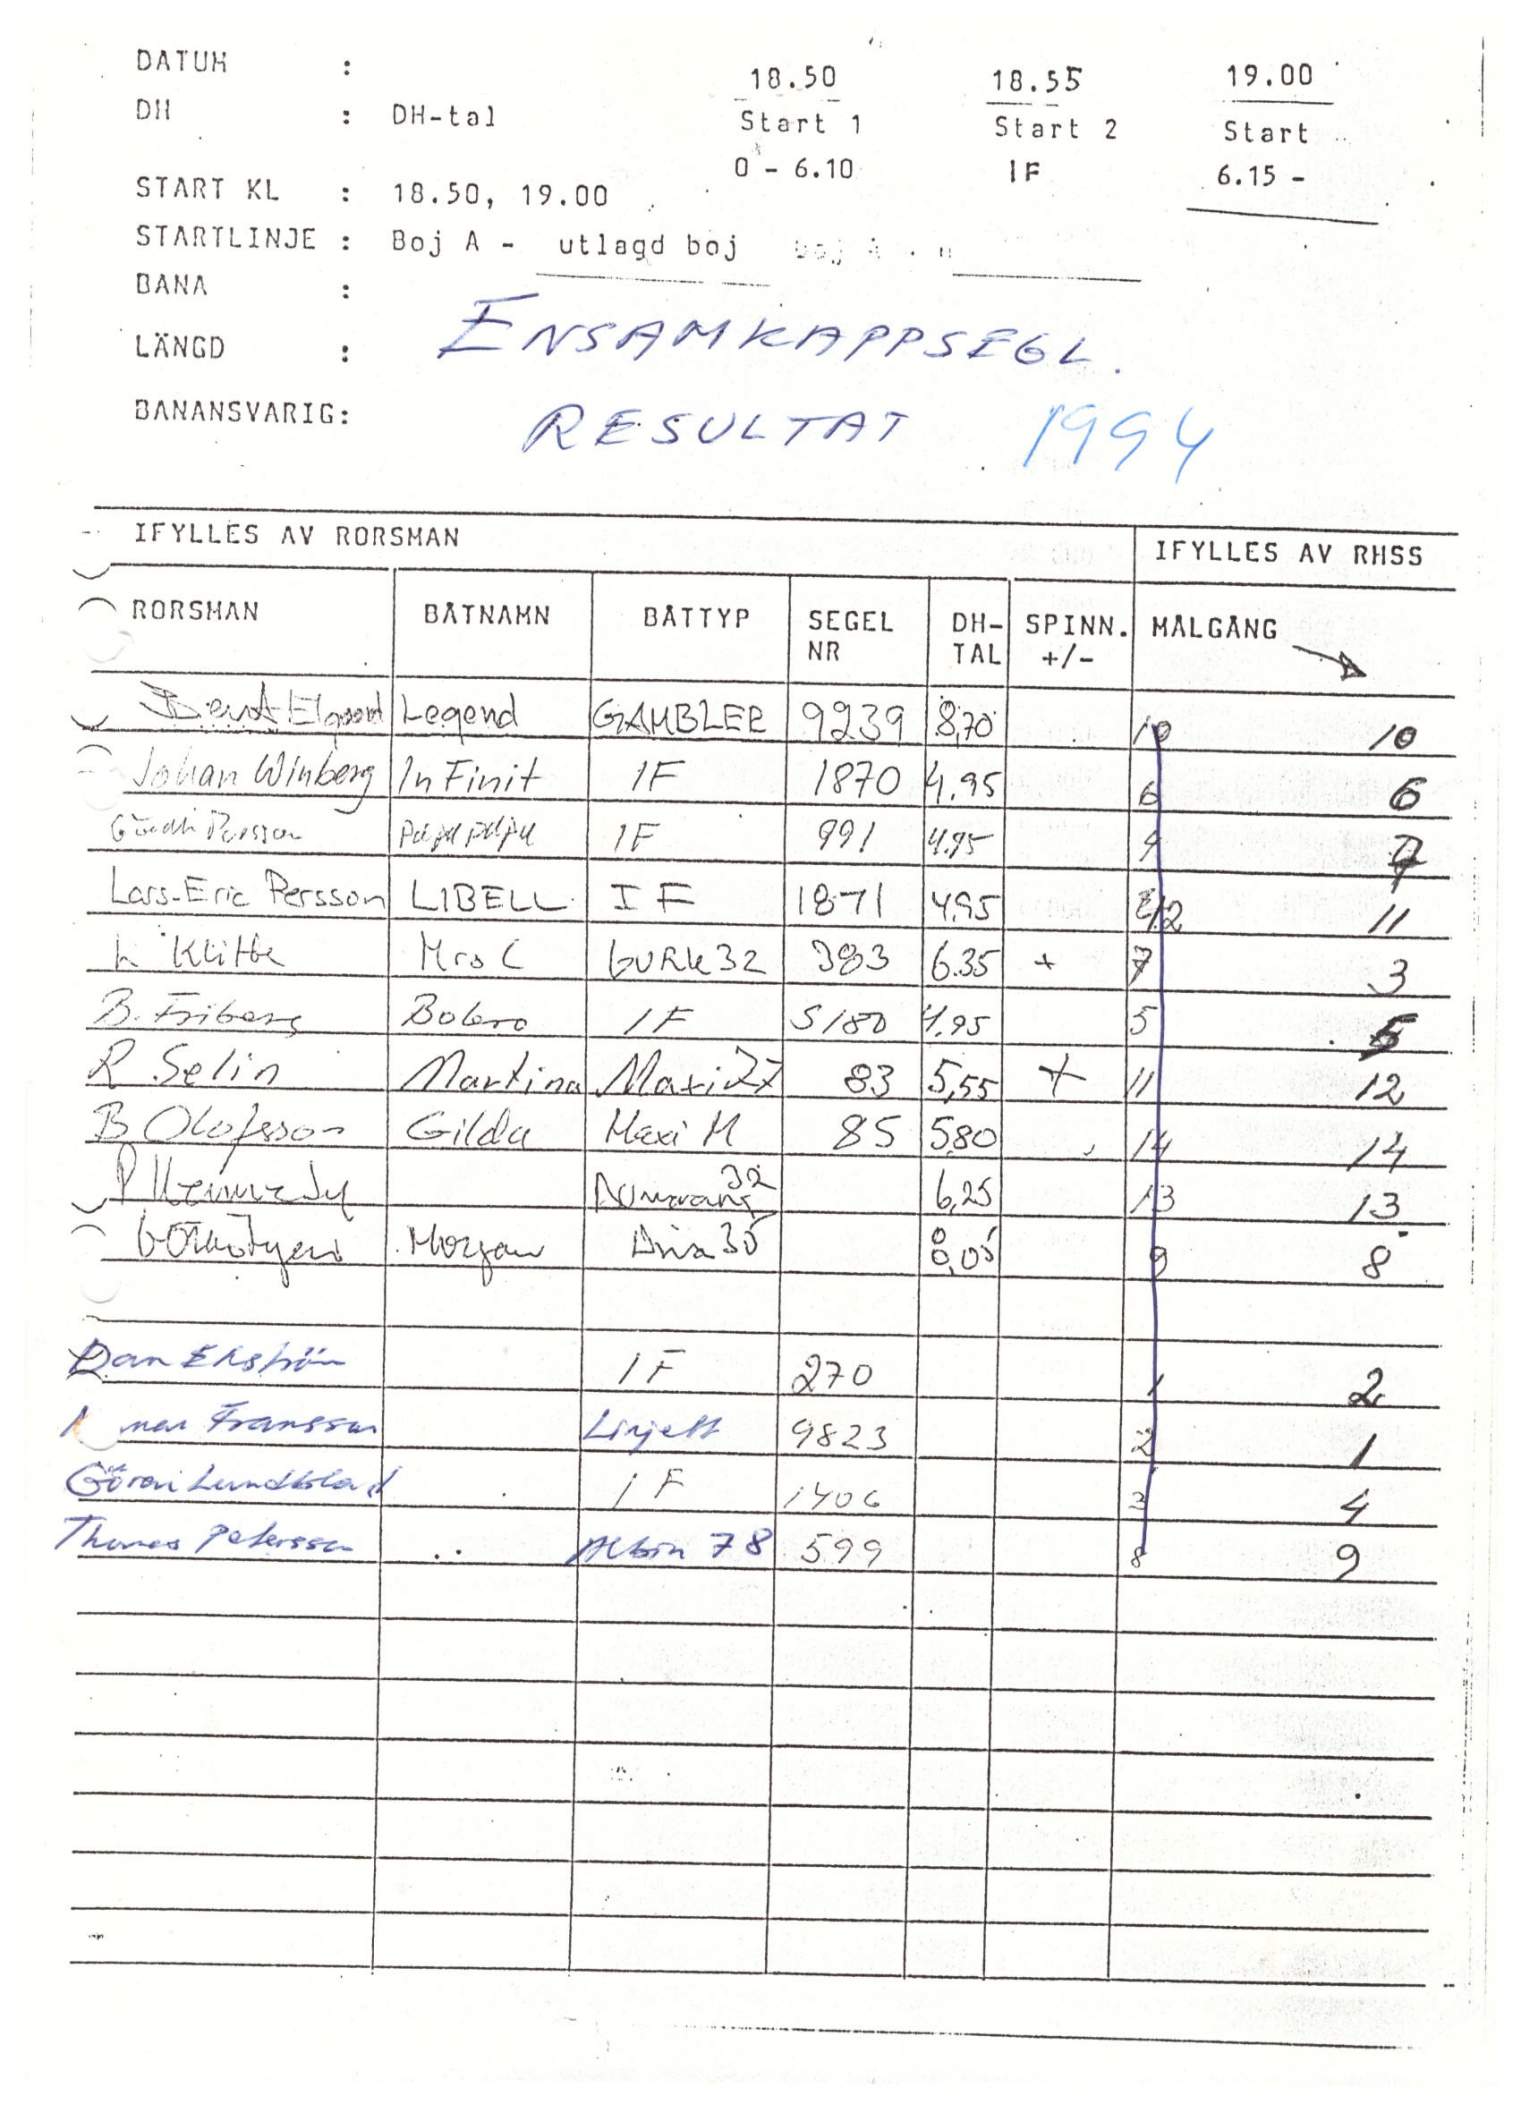 DATUM :
18.50 18.55 19.00
DH : DH-tal Start 1 Start 2 Start
0 - 6.10 IF 6.15 -
START KL : 18.50, 19.00
STARTLINJE : Boj A - utlagd boj
BANA :
LÄNGD : ENSAMKAPPSEGL.
BANANSVARIG: RESULTAT 1994
IFYLLES AV RORSMAN IFYLLES AV RHSS
RORSMAN BÅTNAMN BÅTTYP SEGEL NR DH-TAL SPINN. +/- MÅLGÅNG
Legend GAMBLER 9239 8,70 10 10
Johan Winberg In Finit IF 1870 4.95 6 6
Persson IF 991 4.95 4 7
Lars-Eric Persson LIBELL IF 1871 4,95 12 11
L Klitte Mrs C GURK 32 383 6.35 + 7 3
B. Friberg Bolero IF S180 4.95 5 5
R Selin Martina Maxi 27 83 5,55 + 11 12
B Olofsson Gilda Maxi M 85 5,80 14 14
P 32 6,25 13 13
Morgan 9 8
Dan Ekström IF 270 1 2
Franssen Linjett 9823 2 1
Göran Lundblad IF 1406 3 4
Thomas Petersson Albin 78 599 8 9